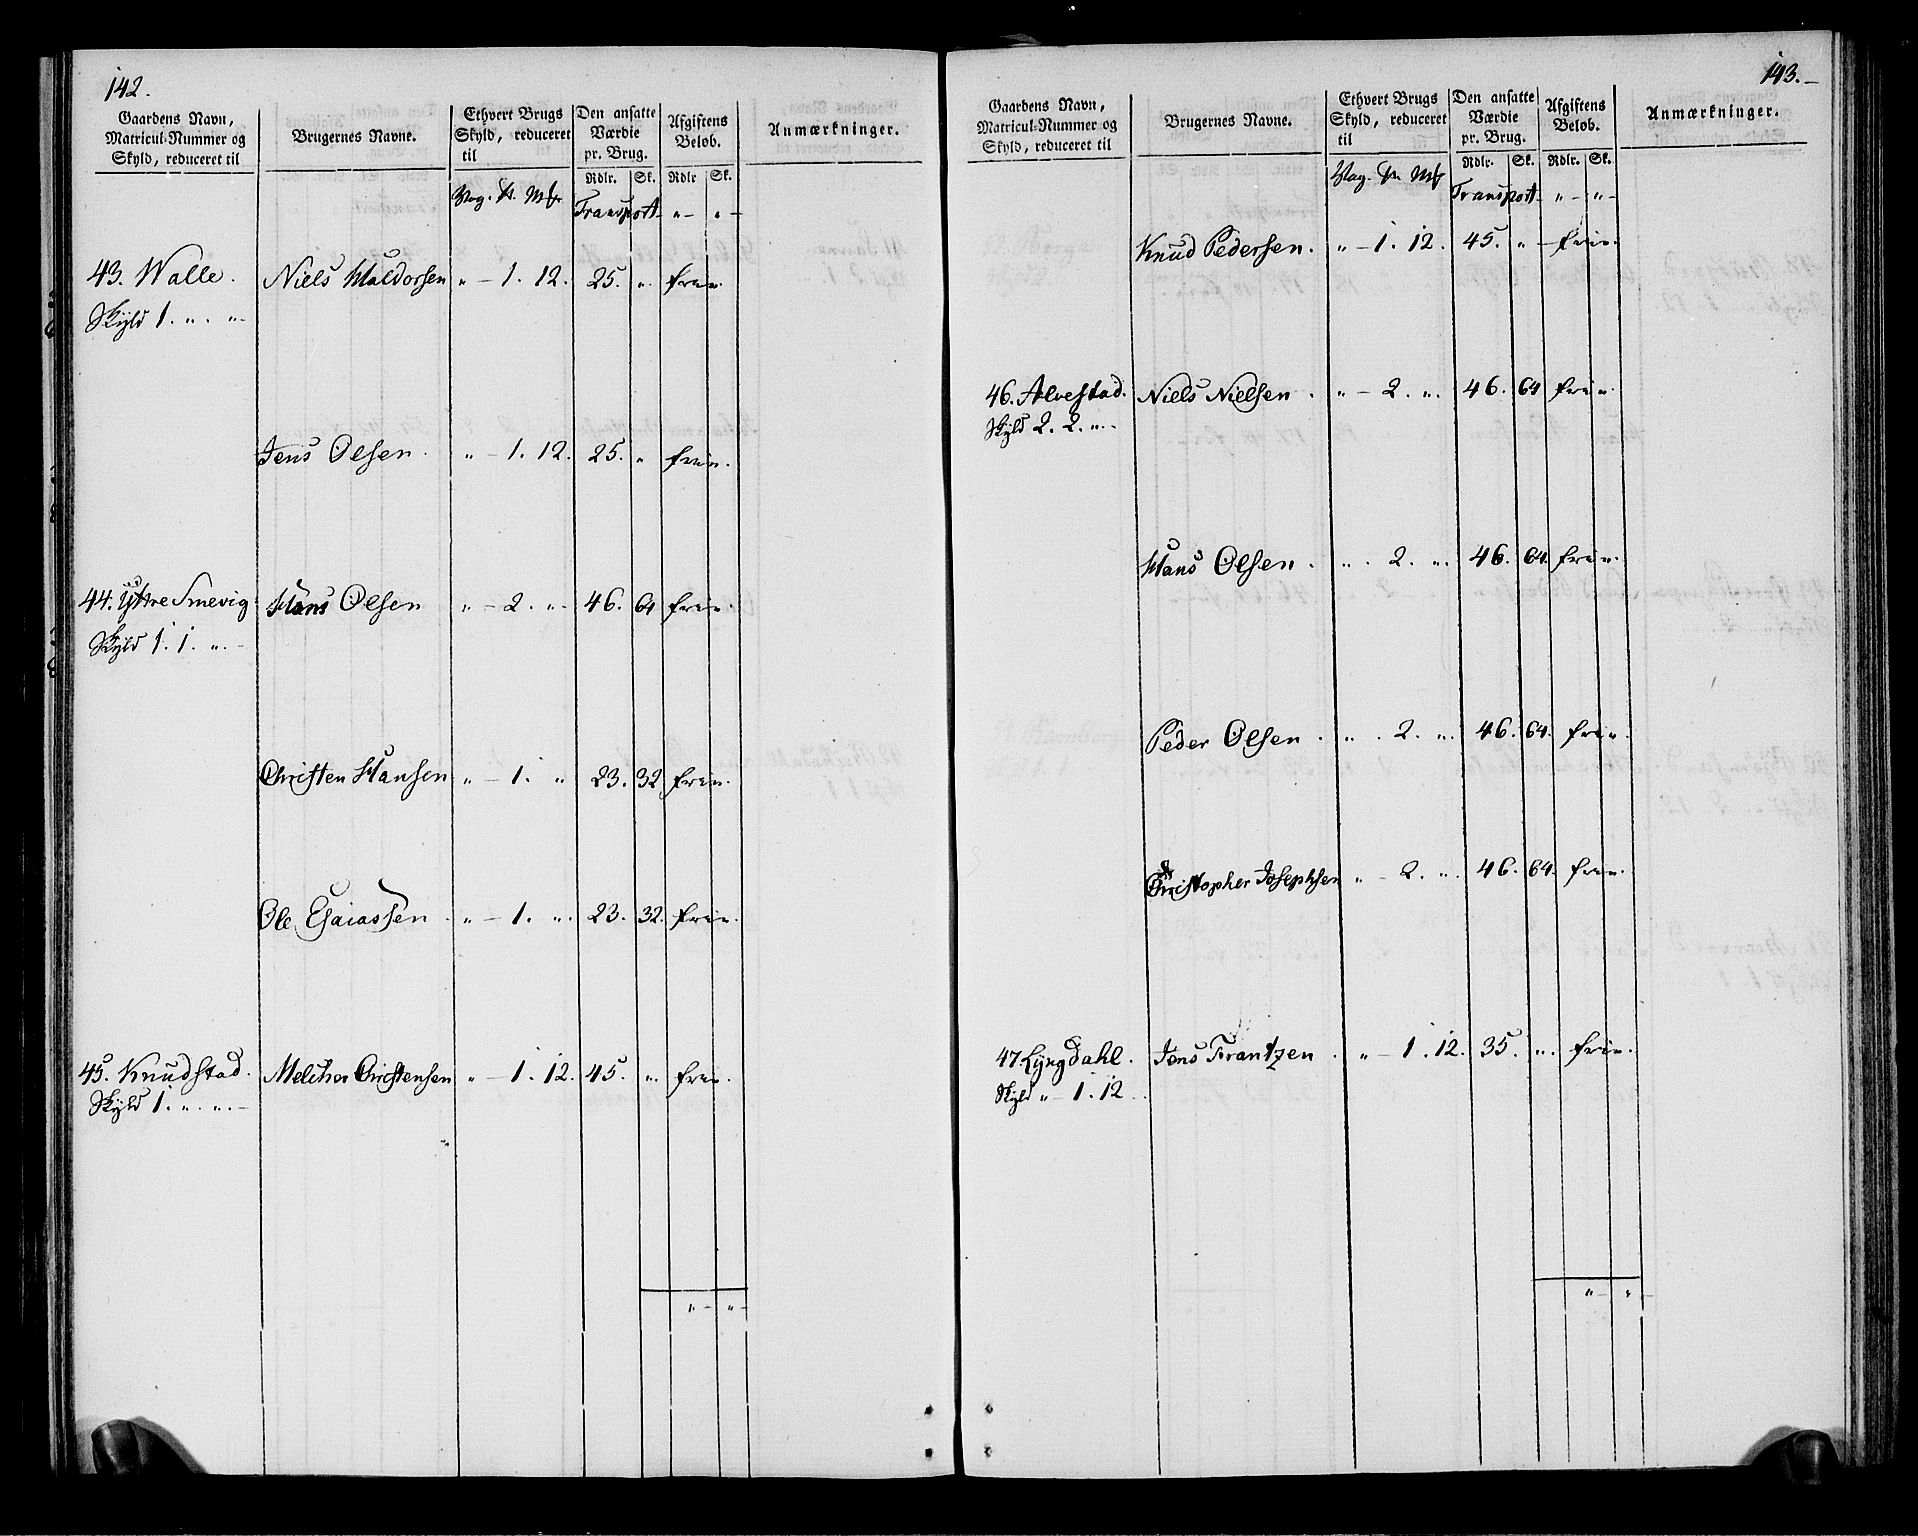 142.
Gaardens Navn, Matricul-Nummer og Skyld, reduceret til
Brugernes Navne.
Ethvert Brugs Skyld, reduceret til
Den ansatte Værdie pr. Brug.
Afgiftens Beløb.
Anmærkninger.
Rdlr. Sk. Rdlr Sk.
Vog. Pd. Mk. Transport „ - „ -
43. Walle. Niels Haldorsen „ - 1. 12. 25. „ frie.
Skyld 1. „. „-
Jens Olsen. „ - 1. 12. 25. „ frie.
44. Yttre Smevig Hans Olsen „ - 2. „- 46. 64 frie.
Skyld 1. 1. „.-
Christen Hansen „ - 1. „ 23. 32 frie.
Ole Esaiassen „ - 1. „. 23. 32. frie.
45. Knudstad. Melchor Christensen „ - 1. 12. 45. „. frie.
Skyld 1. „. „.-
„ - „ -
143.-
Gaardens Navn, Matricul-Nummer og Skyld, reduceret til
Brugernes Navne.
Ethvert Brugs Skyld, reduceret til
Den ansatte Værdie pr. Brug.
Afgiftens Beløb.
Anmærkninger.
Rdlr. Sk. Rdlr. Sk.
Vog. Pd. Mk Transport „ - „ -
Knud Pedersen. „ - 1. 12. 45. „ - frie.
46. Alvestad. Niels Nielsen. „ - 2. „. 46. 64 frie.
Skyld 2. 2. „.-
Hans Olsen. „. 2. „. 46. 64. frie.
Peder Olsen. „. 2. „. 46. 64. frie.
Christopher Josephsen „ - 2. „. 46. 64. frie.
47. Lyngdahl. Jens Frantzen. „ - 1. 12. 35. „. frie.
Skyld „ - 1. 12.
„ - „ -